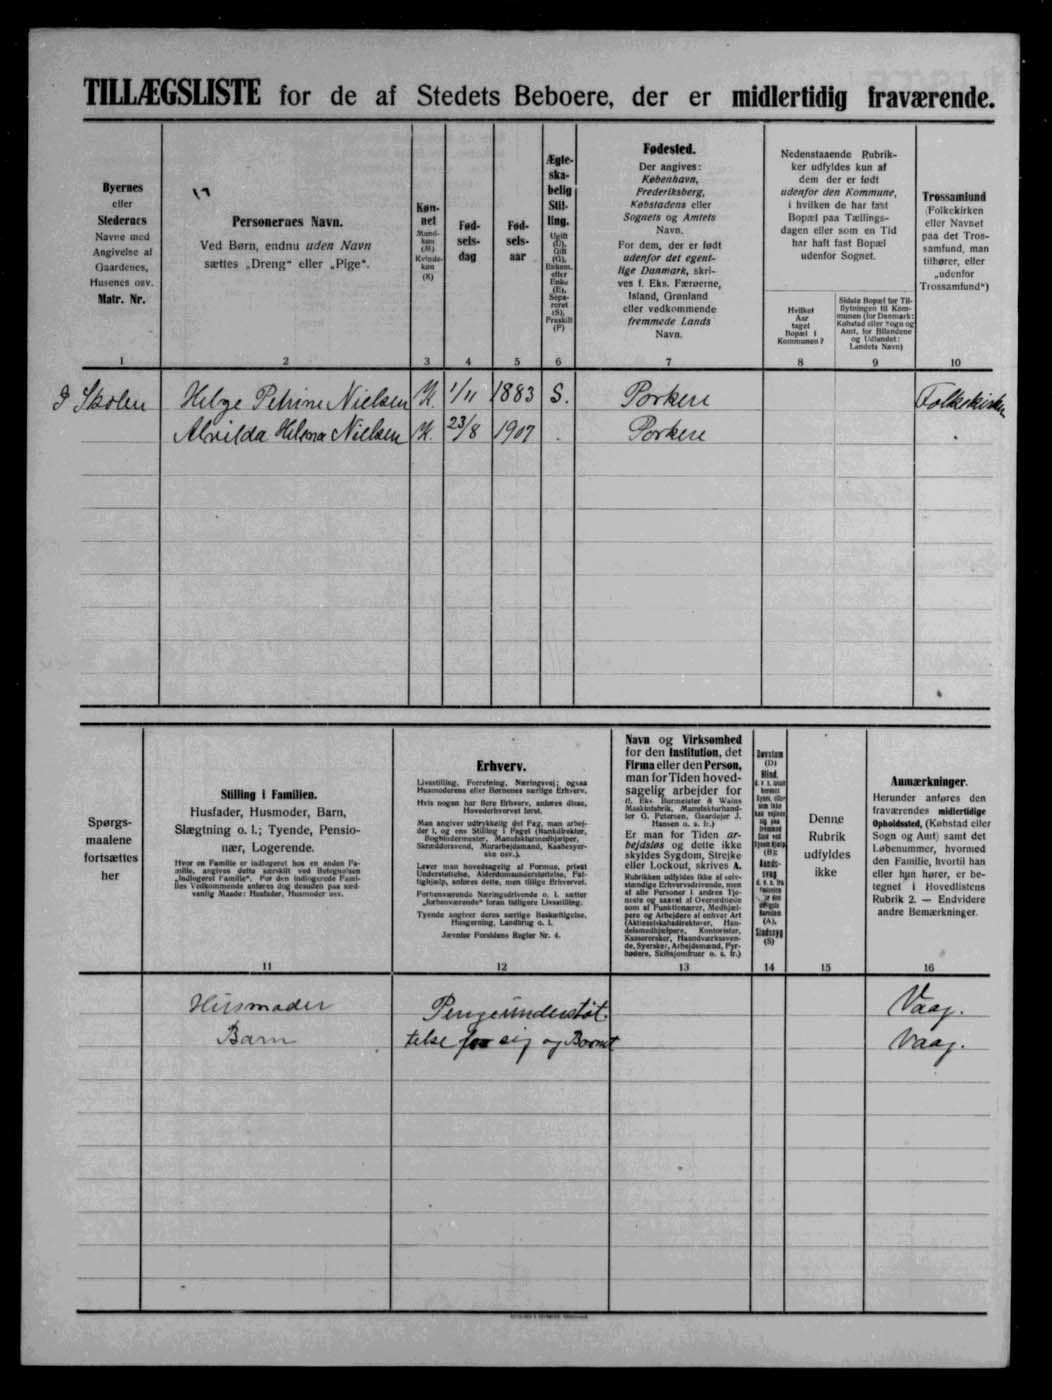 TILLÆGSLISTE for de af Stedets Beboere, der er midlertidig fraværende.
Byernes
eller
Stedernes
Navne med
Angivelse af
Gaardenes,
Husenes osv.
Matr. Nr.
Personernes Navn.
Ved Børn, endnu uden Navn
sættes „Dreng“ eller „Pige“.
Køn-
net
Mand-
køn
(M)
Kvinde-
køn
(K)
Fød-
sels-
dag
Fød-
sels-
aar
Ægte-
ska-
belig
Stil-
ling.
Ugift
(U),
Gift
(G),
Enkem.
eller
Enke
(E),
Sepa-
reret
(S),
Fraskilt
(F)
Fødested.
Der angives:
København,
Frederiksberg,
Købstadens eller
Sognets og Amtets
Navn.
For dem, der er født
udenfor det egent-
lige Danmark, skri-
ves f. Eks. Færøerne,
Island, Grønland
eller vedkommende
fremmede Lands
Navn.
Nedenstaaende Rubrik-
ker udfyldes kun af
dem der er født
udenfor den Kommune,
i hvilken de har fast
Bopæl paa Tællings-
dagen eller som en Tid
har haft fast Bopæl
udenfor Sognet.
Hvilket
Aar
taget
Bopæl i
Kommunen?
Sidste Bopæl før Til-
flytningen til Kom-
munen (for Danmark:
Købstad eller Sogn og
Amt, for Bilandene
og Udlandet:
Landets Navn)
Trossamfund
(Folkekirken
eller Navnet
paa det Tros-
samfund, man
tilhører, eller
„udenfor
Trossamfund“)
1 2 3 4 5 6 7 8 9 10
I Skolen Helge Petrine Nielsen K. 1/11 1883 S. Porkere Folkekirken
Alvilda Helena Nielsen K. 23/8 1907 . Porkere .
Spørgs-
maalene
fortsættes
her
Stilling i Familien.
Husfader, Husmoder, Barn,
Slægtning o. l.; Tyende, Pensio-
nær, Logerende.
Hvor en Familie er indlogeret hos en anden Fa-
milie, angives dette særskilt ved Betegnelsen
„Indlogeret Familie“. For den indlogerede Fami-
lies Vedkommende anføres dog desuden paa sæd-
vanlig Maade: Husfader, Husmoder osv.
Erhverv.
Livsstilling, Forretning, Næringsvej; ogsaa
Husmoderens eller Børnenes særlige Erhverv.
Hvis nogen har flere Erhverv, anføres disse,
Hovederhvervet først.
Man angiver udtrykkelig det Fag, man arbej-
der i, og ens Stilling i Faget (Bankdirektør,
Bogbindermester, Manufakturmedhjælper,
Skræddersvend, Murarbejdsmand, Kaabesyer-
ske osv.).
Lever man hovedsagelig af Formue, privat
Understøttelse, Alderdomsunderstøttelse, Fat-
tighjælp, anføres dette, men tillige Erhvervet.
Forhenværende Næringsdrivende o. l. sætter
„forhenværende“ foran tidligere Livsstilling.
Tyende angiver deres særlige Beskæftigelse,
Husgerning, Landbrug o. l.
Jævnfør Forsidens Regler Nr. 4.
Navn og Virksomhed
for den Institution, det
Firma eller den Person,
man for Tiden hoved-
sagelig arbejder for
(f. Eks. Burmeister & Wains
Maskinfabrik, Manufakturhand-
ler G. Petersen, Gaardejer J.
Hansen o. s. fr.)
Er man for Tiden ar-
bejdsløs og dette ikke
skyldes Sygdom, Strejke
eller Lockout, skrives A.
Rubrikken udfyldes ikke af selv-
stændige Erhvervsdrivende, men
af alle Personer i andres Tje-
neste og saavel af Overordnede
som af Funktionærer, Medhjæl-
pere og Arbejdere af enhver Art
(Aktieselskabsdirektører, Han-
delsmedhjælpere, Kontorister,
Kassererske, Haandværkssven-
de, Syersker, Arbejdsmænd, Fyr-
bødere, Skibsjomfruer o. s. fr.)
Døvstum
(D)
Blind,
(B);
Aands-
svag
(A),
Sindssyg
(S)
Denne
Rubrik
udfyldes
ikke
Anmærkninger.
Herunder anføres den
fraværendes midlertidige
Opholdssted, (Købstad eller
Sogn og Amt) samt det
Løbenummer, hvormed
den Familie, hvortil han
eller hun hører, er be-
tegnet i Hovedlistens
Rubrik 2. — Endvidere
andre Bemærkninger.
11 12 13 14 15 16
Husmoder Pengeunderstøt- Vaag.
Barn telse for sig og Barnet Vaag.